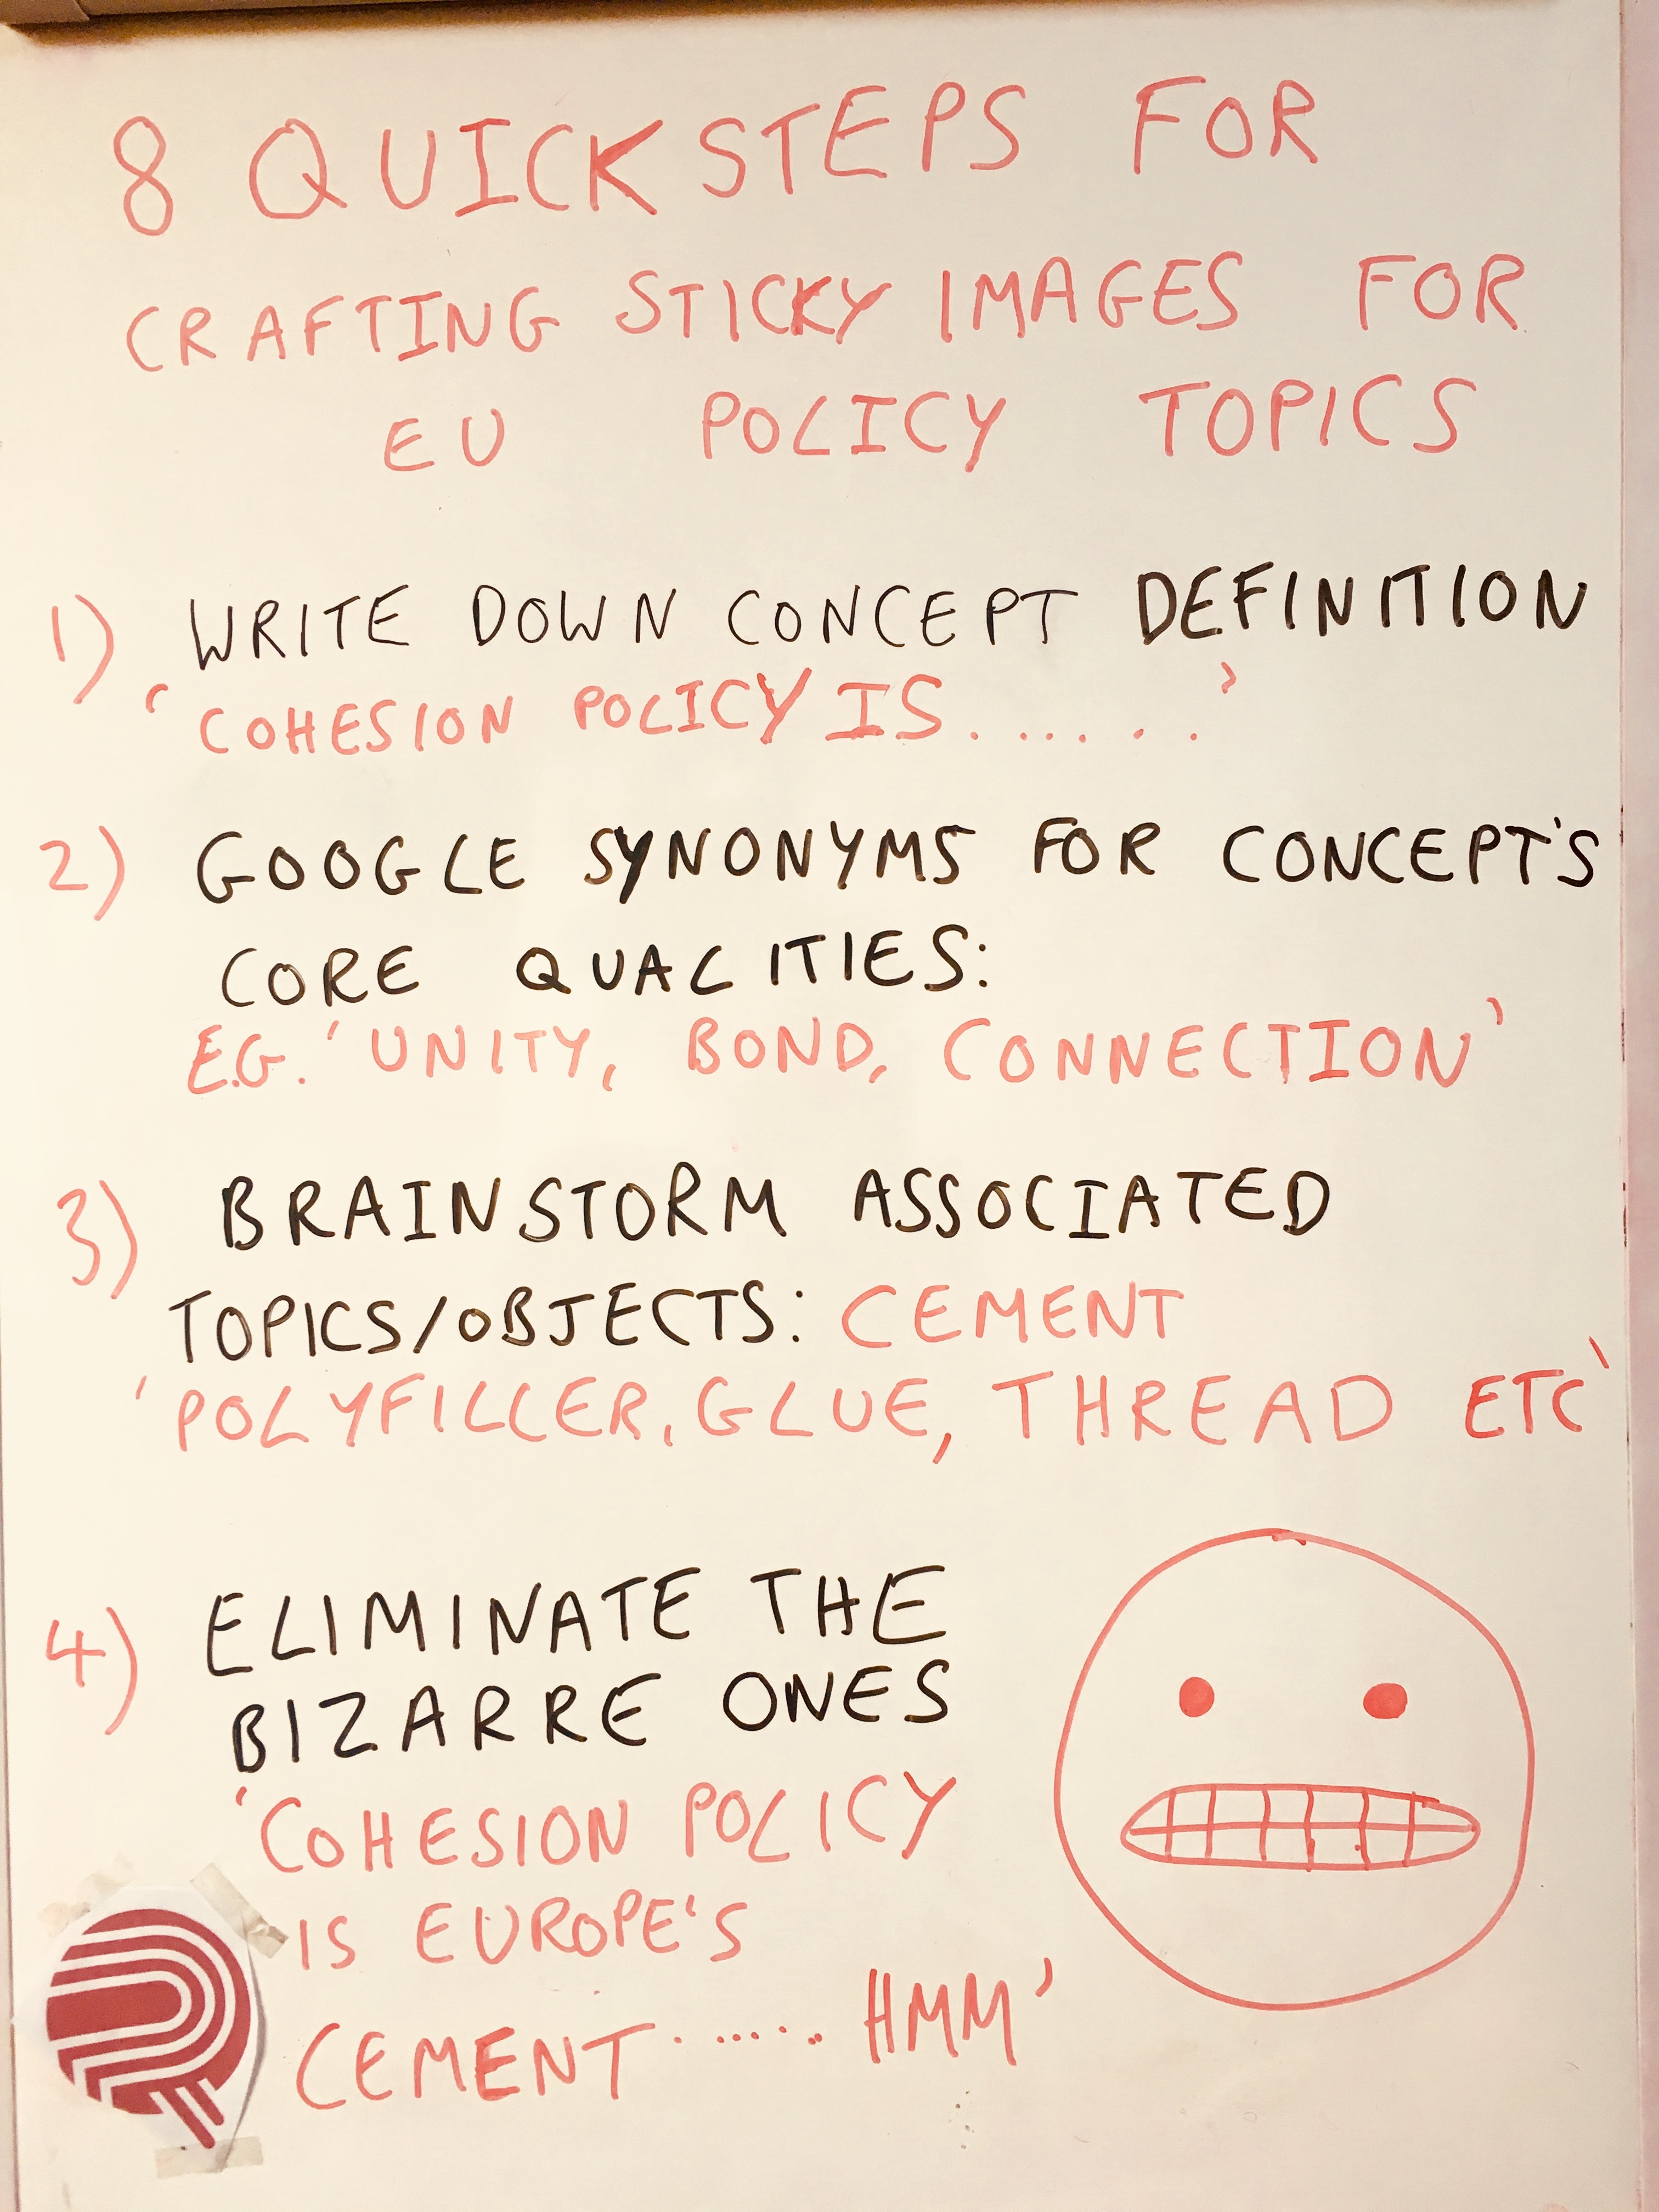 8 QUICK STEPS FOR
CRAFTING STICKY IMAGES FOR
EU POLICY TOPICS
1) WRITE DOWN CONCEPT DEFINITION
'COHESION POLICY IS.......'
2) GOOGLE SYNONYMS FOR CONCEPT'S
CORE QUALITIES:
E.G. 'UNITY, BOND, CONNECTION'
3) BRAINSTORM ASSOCIATED
TOPICS/OBJECTS: CEMENT
'POLYFILLER, GLUE, THREAD ETC'
4) ELIMINATE THE
BIZARRE ONES
'COHESION POLICY
IS EUROPE'S
CEMENT....... HMM'